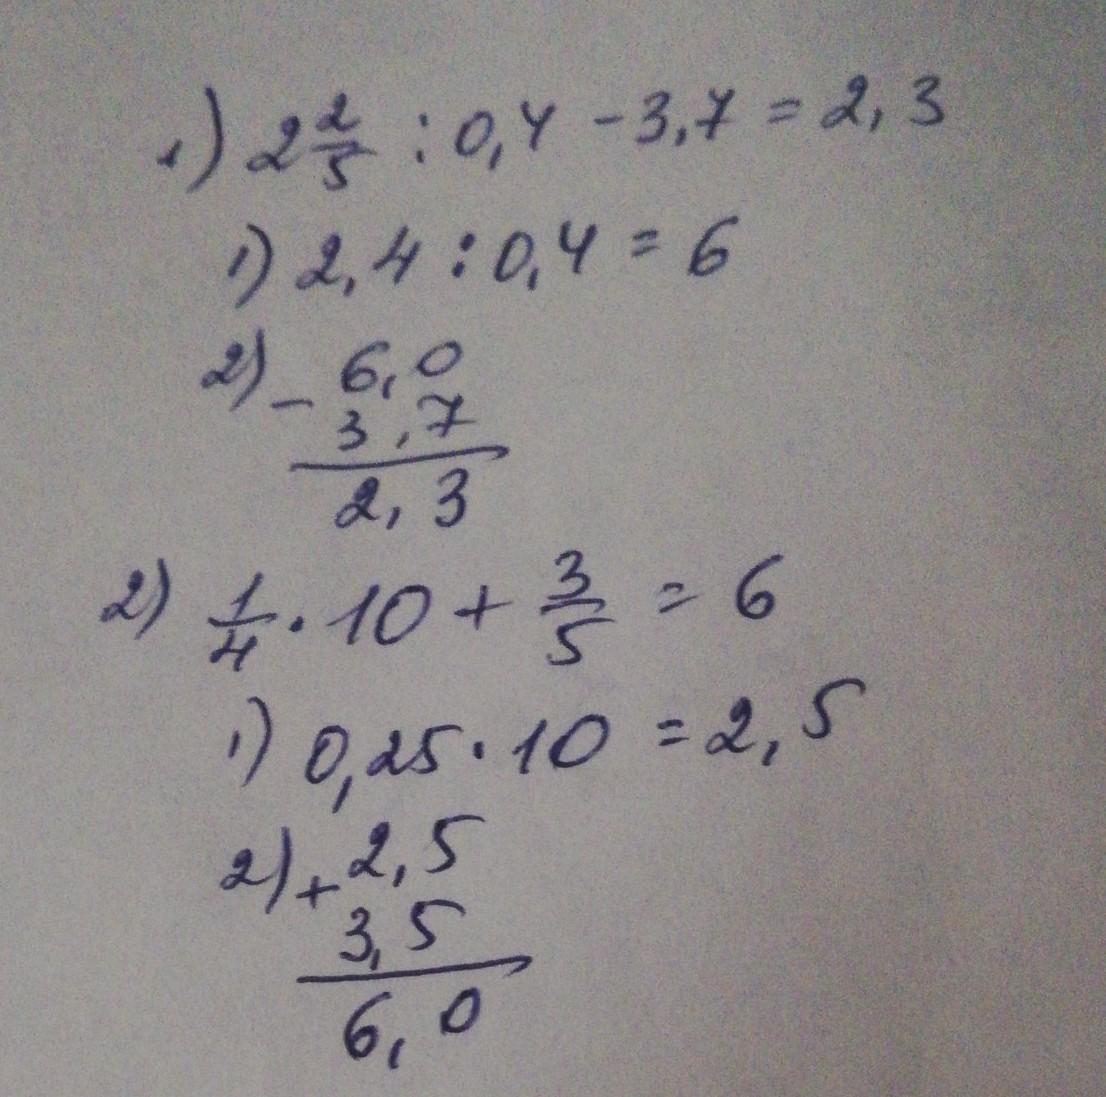 1) 2 2/5 : 0,4 - 3,7 = 2,3
1) 2,4 : 0,4 = 6
2) - 6,0
3,7
2,3
2) 1/4 · 10 + 3/5 = 6
1) 0,25 · 10 = 2,5
2) + 2,5
3,5
6,0